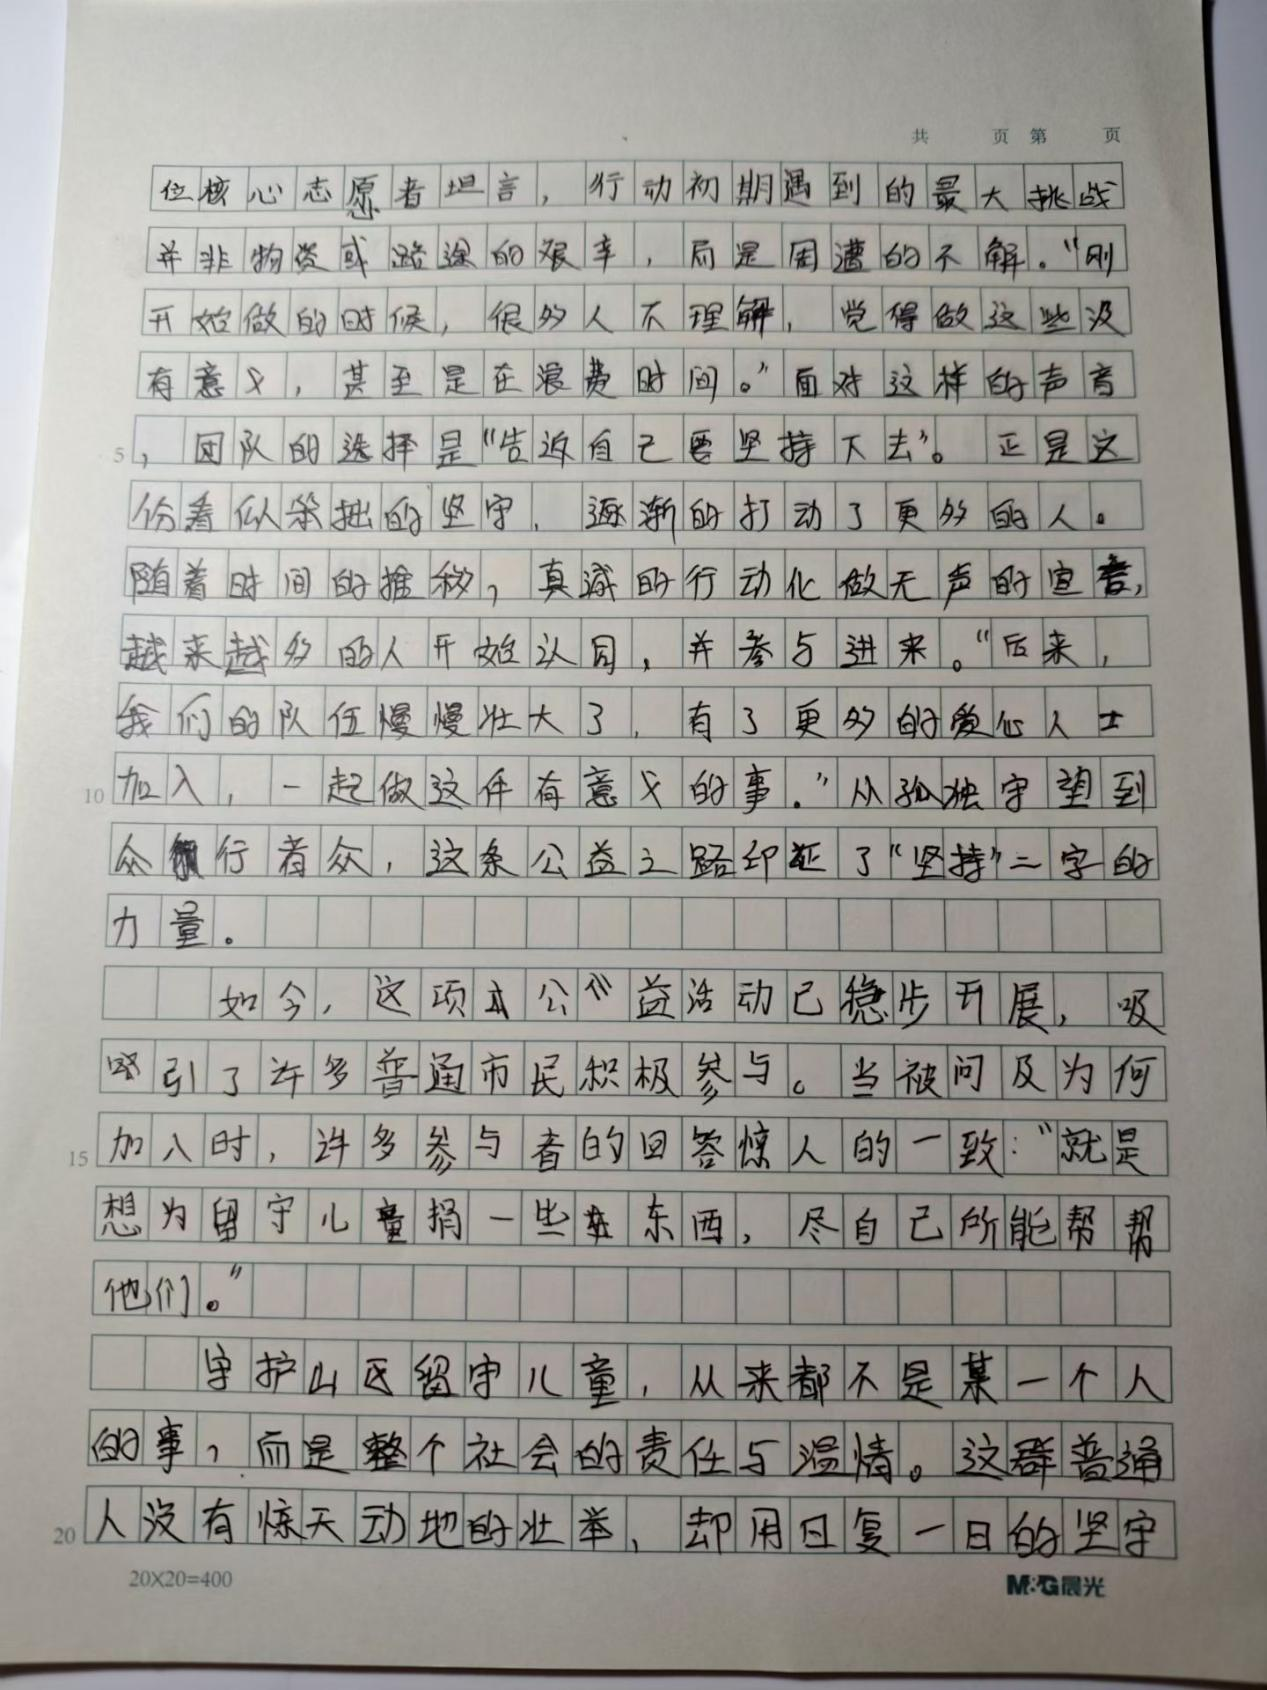 共 页 第 页
位核心志愿者坦言，行动初期遇到的最大挑战
并非物资或路途的艰辛，而是周遭的不解。“刚
开始做的时候，很多人不理解，觉得做这些没
有意义，甚至是在浪费时间。”面对这样的声音
5，团队的选择是“告诉自己要坚持下去”。正是这
份看似笨拙的坚守，逐渐的打动了更多的人。
随着时间的推移，真诚的行动化做无声的宣言，
越来越多的人开始认同，并参与进来。“后来，
我们的队伍慢慢壮大了，有了更多的爱心人士
10加入，一起做这件有意义的事。”从孤独守望到
众行者众，这条公益之路印证了“坚持”二字的
力量。
如今，这项公益活动已稳步开展，吸
引了许多普通市民积极参与。当被问及为何
15加入时，许多参与者的回答惊人的一致：“就是
想为留守儿童捐一些东西，尽自己所能帮帮
他们。”
守护山区留守儿童，从来都不是某一个人
的事，而是整个社会的责任与温情。这群普通
20人没有惊天动地的壮举，却用日复一日的坚守
20X20=400 M&G晨光